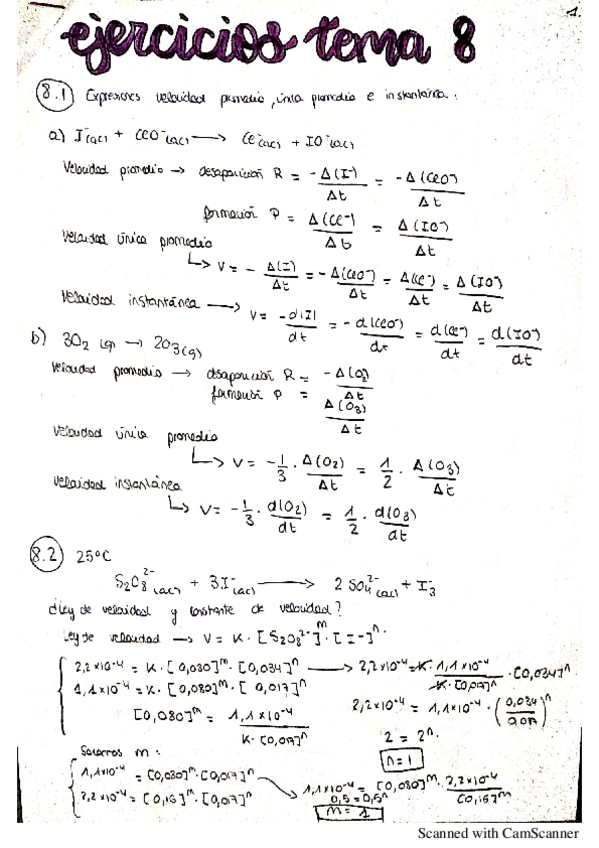 1.
ejercicios tema 8
8.1 Expresiones velocidad promedio, única promedio e instantánea.
a) I⁻(ac) + ClO⁻(ac) ⟶ Cl⁻(ac) + IO⁻(ac)
Velocidad promedio → desaparición R = -Δ(I⁻)/Δt = -Δ(ClO⁻)/Δt
formación P = Δ(Cl⁻)/Δt = Δ(IO⁻)/Δt
Velocidad única promedio
↳ V = - Δ(I)/Δt = - Δ(ClO⁻)/Δt = Δ(Cl⁻)/Δt = Δ(IO⁻)/Δt
Velocidad instantánea ⟶ V = -d(I)/dt = -d(ClO⁻)/dt = d(Cl⁻)/dt = d(IO⁻)/dt
b) 3O₂ (g) ⟶ 2O₃(g)
Velocidad promedio → desaparición R = -Δ(O₂)/Δt
formación P = Δ(O₃)/Δt
Velocidad única promedio
↳ V = -1/3 · Δ(O₂)/Δt = 1/2 · Δ(O₃)/Δt
Velocidad instantánea
↳ V = -1/3 · d(O₂)/dt = 1/2 · d(O₃)/dt
8.2 25°C
S₂O₈²⁻(ac) + 3I⁻(ac) ⟶ 2 SO₄²⁻(ac) + I₃⁻
¿Ley de velocidad y constante de velocidad?
Ley de velocidad → V = K · [S₂O₈²⁻]ᵐ · [I⁻]ⁿ
2,2×10⁻⁴ = K · [0,080]ᵐ · [0,034]ⁿ ⟶ 2,2×10⁻⁴ = K · 1,1×10⁻⁴/K·[0,017]ⁿ · [0,034]ⁿ
1,1×10⁻⁴ = K · [0,080]ᵐ · [0,017]ⁿ
2,2×10⁻⁴ = 1,1×10⁻⁴ · (0,034/0,017)ⁿ
[0,080]ᵐ = 1,1×10⁻⁴/K·[0,017]ⁿ
2 = 2ⁿ
n = 1
Sacamos m:
1,1×10⁻⁴ = [0,080]ᵐ · [0,017]ⁿ
2,2×10⁻⁴ = [0,16]ᵐ · [0,017]ⁿ
1,1×10⁻⁴ = [0,080]ᵐ · 2,2×10⁻⁴/[0,16]ᵐ
0,5 = 0,5ᵐ
m = 1
Scanned with CamScanner